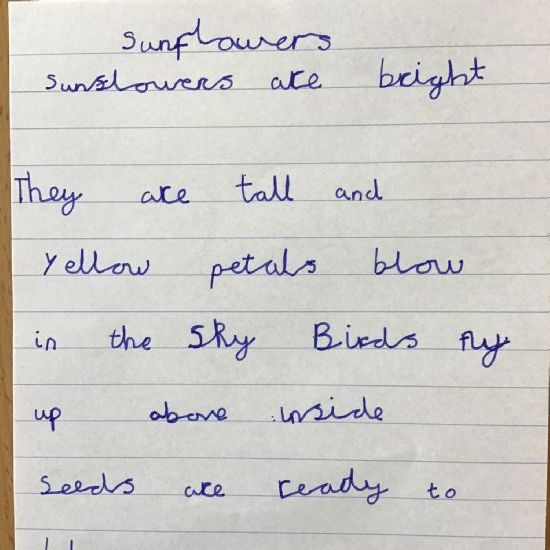 Sunflowers
Sunslowers are bright
They are tall and
yellow petals blow
in the Sky Birds fly
up above inside
Seeds are ready to